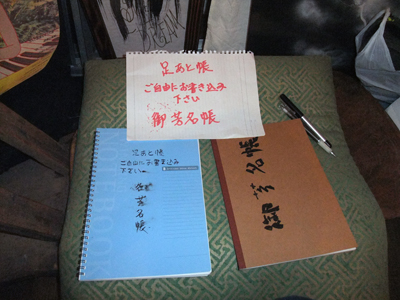 足あと帳
ご自由にお書き込み
下さい
御芳名帳
足あと帳
ご自由にお書き込み
下さい
芳
名
帳
御芳名帳